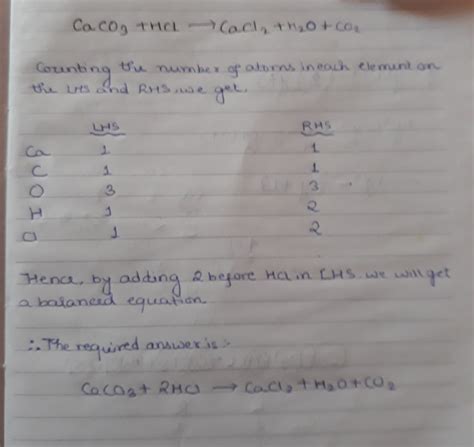 CaCO3 + HCl → CaCl2 + H2O + CO2
Counting the number of atoms in each element on
the LHS and RHS, we get.
LHS RHS
Ca 1 1
C 1 1
O 3 3
H 1 2
Cl 1 2
Hence, by adding 2 before HCl in LHS we will get
a balanced equation.
∴ The required answer is :-
CaCO3 + 2HCl → CaCl2 + H2O + CO2